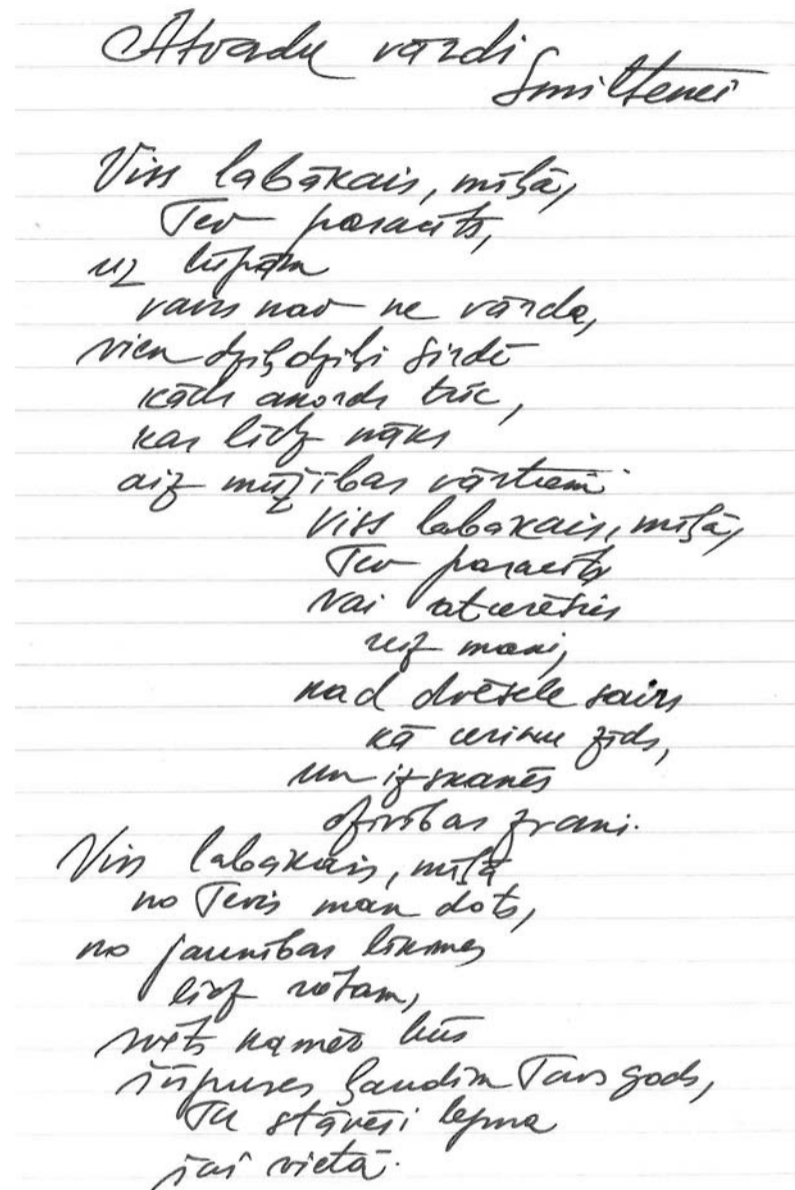 Atvadu vārdi
Smiltenei
Viss labākais, mīļā,
Tev pasacīts,
uz lūpām
vairs nav ne vārda,
vien dziļdziļi sirdī
kāds akords trīc,
kas līdz nāks
aiz mūžības vārtiem.
Viss labākais, mīļā,
Tev pasacīts
Vai atcerēsies
reiz mani,
kad dvēsele sairs
kā ceriņu zieds,
un izskanēs
dzīvības zvani.
Viss labākais, mīļā
no Tevis man dots,
no jaunības līksmes
līdz rētam,
svēts kamēr būs
šūpuļa ļaudīm Tavs gods,
Tu stāvēsi lepna
šai vietā.